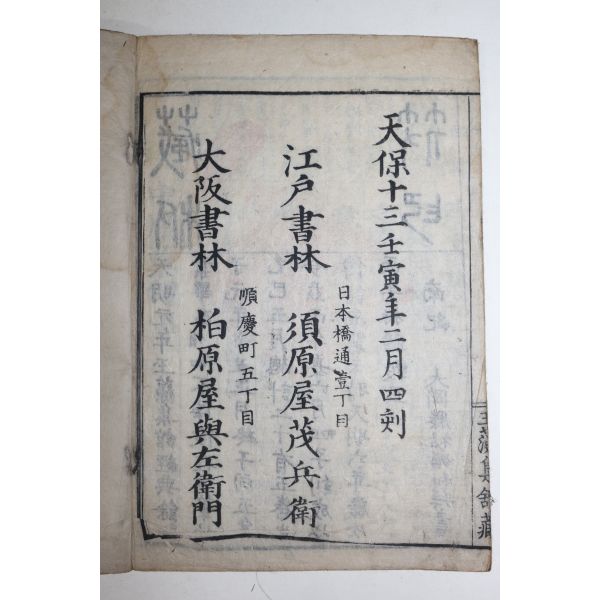 天保十三壬寅年二月四刻
日本橋通壹丁目
江戸書林　須原屋茂兵衛
順慶町五丁目
大阪書林　柏原屋與左衛門